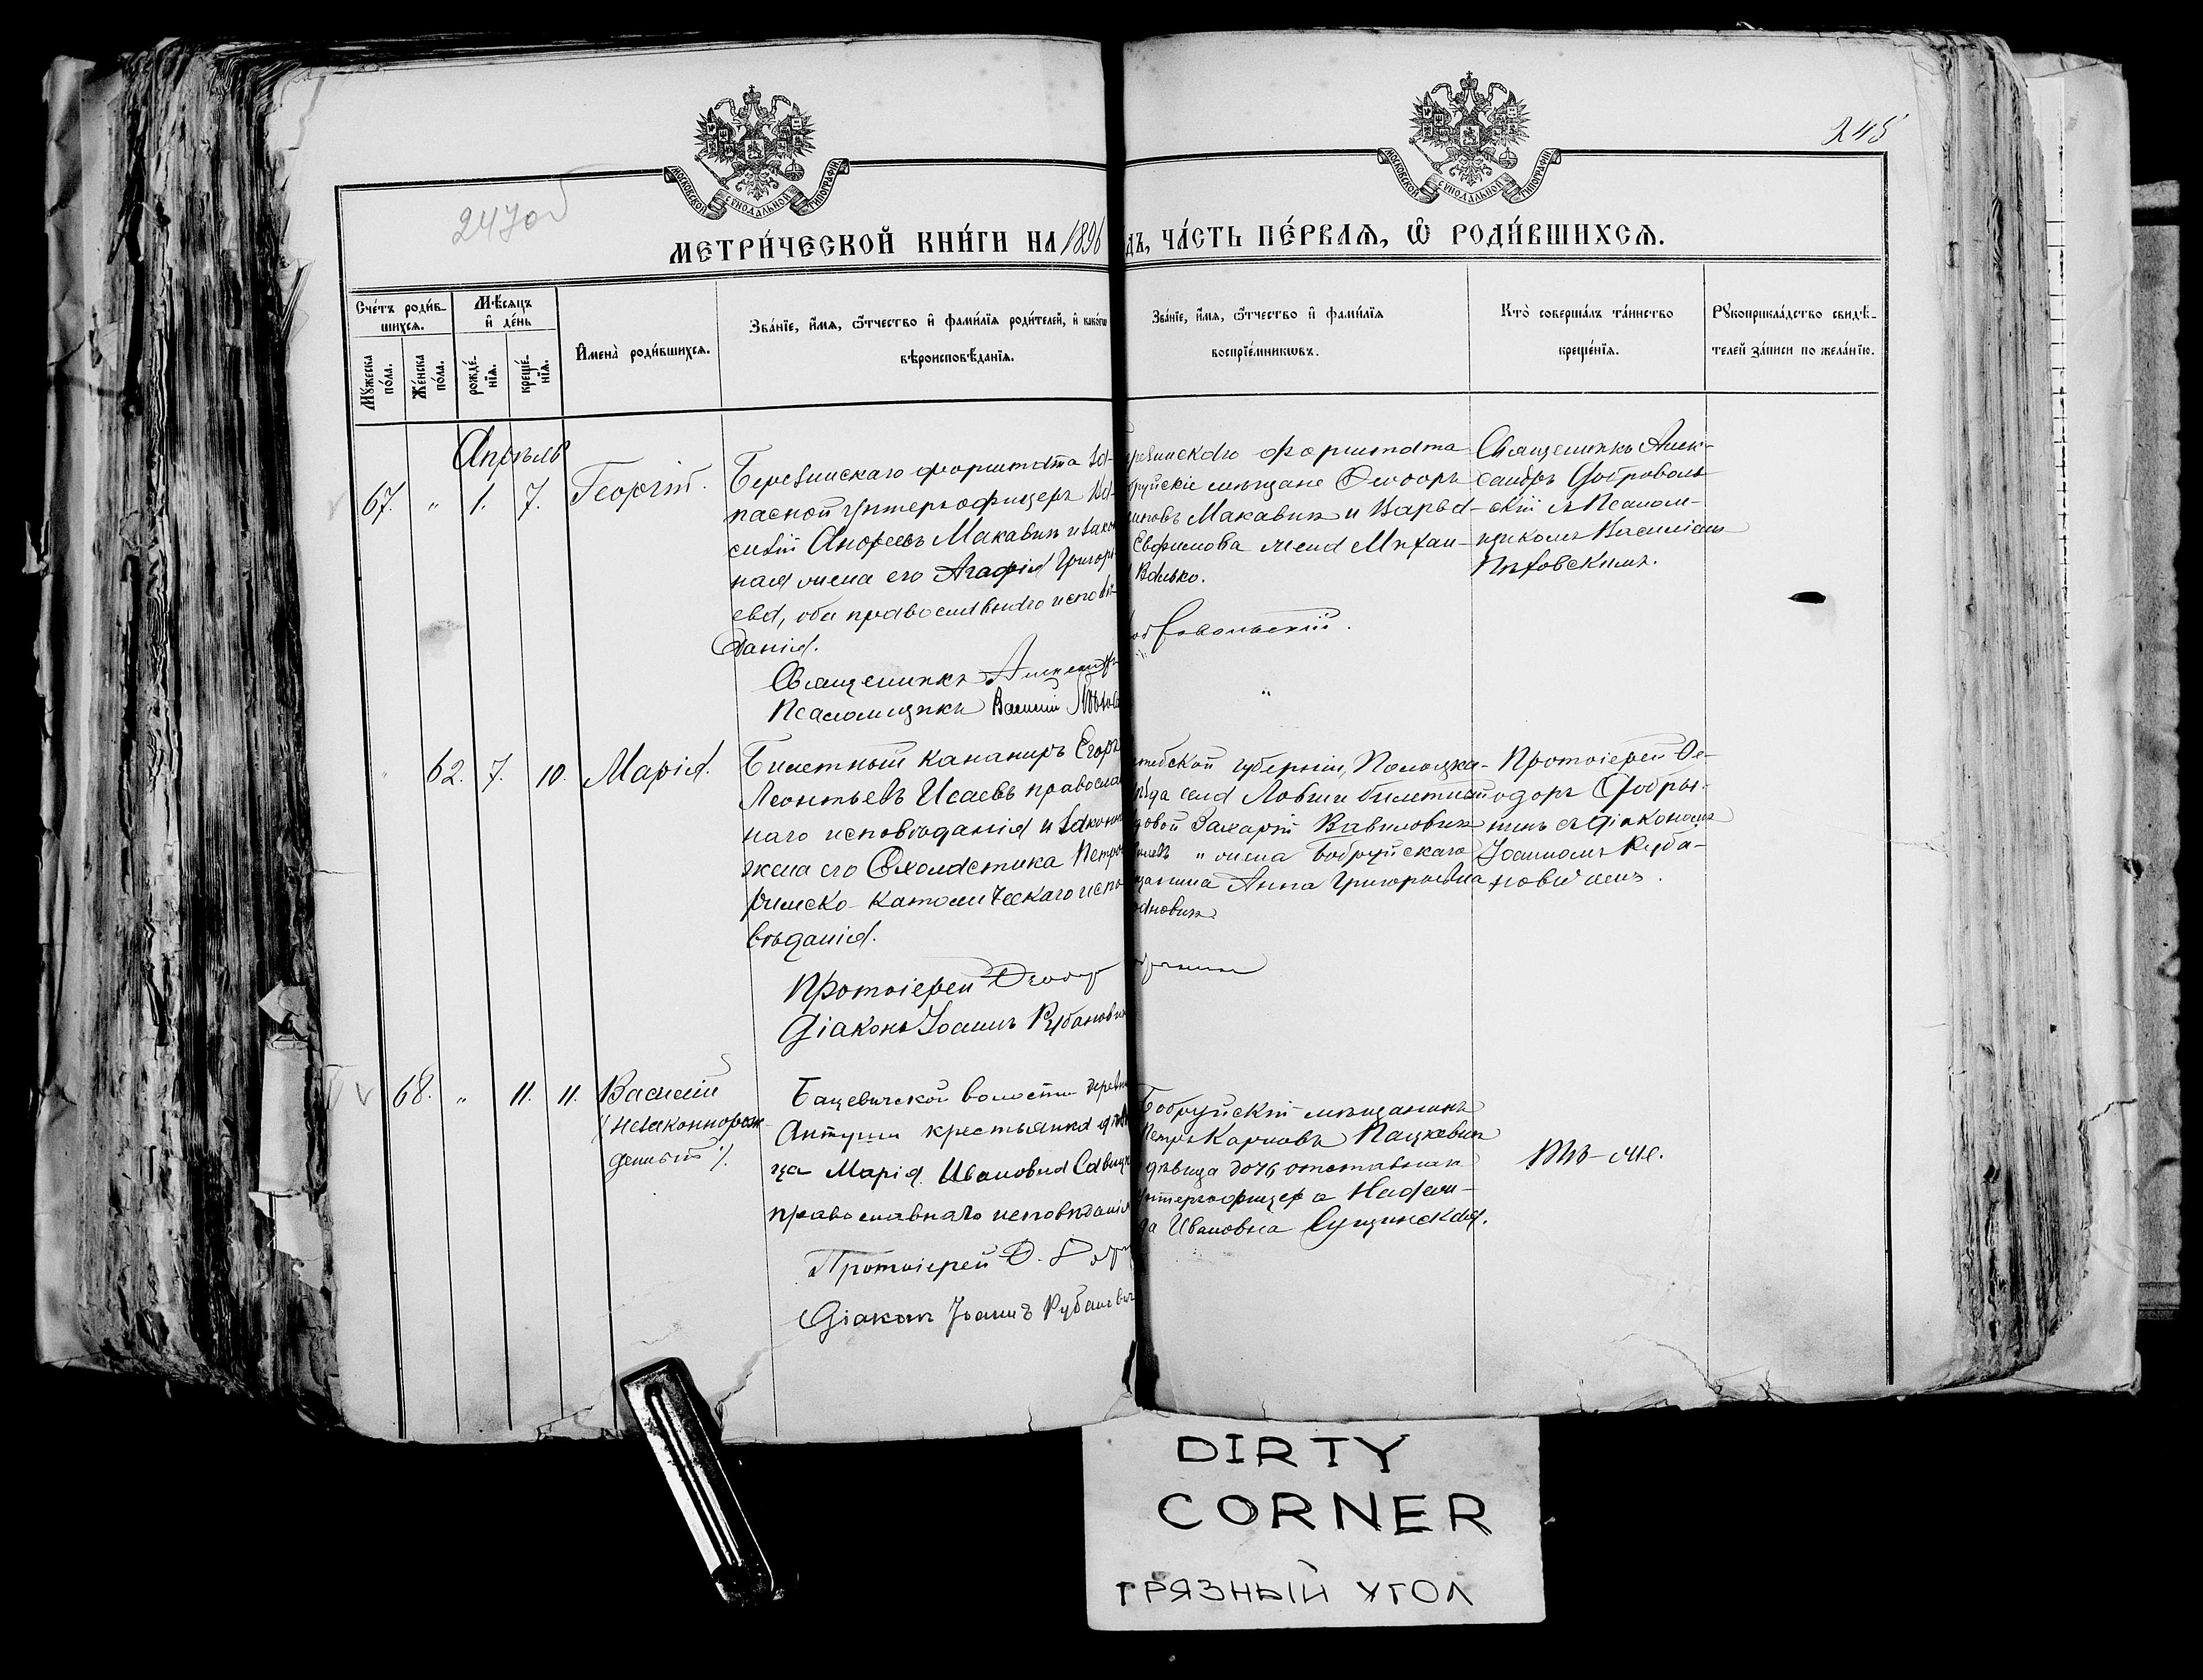 МОСКОВСКОЙ СѴНОДАЛЬНОЙ ТИПОГРАФІИ
МОСКОВСКОЙ СѴНОДАЛЬНОЙ ТИПОГРАФІИ
247об
245
МЕТРИ́ЧЕСКОЙ КНИ́ГИ НА 1896
ДЪ, ЧА́СТЬ ПЕ́РВАѦ, Ѿ РОДИ́ВШИХСѦ.
Сче́тъ роди́в-
шихсѧ.
Мꙋ́жеска по́ла.
Же́нска по́ла.
Мѣ́сѧцъ
и҆ де́нь
рожде́-
нїѧ.
креще́-
нїѧ.
И҆мена̀ роди́вшихсѧ.
Зва́нїе, и҆́мѧ, ѻ҆́тчество и҆ фами́лїѧ роди́телей, и҆ како́гѡ
вѣроисповѣ́данїѧ.
Зва́нїе, и҆́мѧ, ѻ҆́тчество и҆ фами́лїѧ
воспрїе́мникѡвъ.
Кто̀ соверша́лъ та́инство
креще́нїѧ.
Рꙋкоприкла́дство свидѣ́-
телей за́писи по жела́нїю.
Апрѣль
67. " 1. 7. Георгій.
Березинскаго форштата За-
пасной Унтеръ-офицеръ
силій Андреевъ Макавчикъ и закон
ная жена его Агафія Григорь
ева, оба православнаго исповѣ
данія.
Священникъ Александръ
Псаломщикъ Василій
резинскаго форштата
бруйскіе мѣщане Ѳеодоръ
Макавчикъ и Варва-
Евфимова жена Михаи-
Валько.
Добровольскій.
Священникъ Алек-
сандръ Доброволь-
скій съ Псалом-
щикомъ Василіемъ
Пиховскимъ.
" 62. 7. 10. Марія.
Билетный канониръ Егоръ
Леонтьевъ Исаевъ православ
наго исповѣданія и законн
жена его Схоластика Петро
римско-католическаго испо
вѣданія.
Протоіерей Ѳеодор
Діаконъ Іоаннъ Рубанович
тебской губерніи, Полоцка-
ѣзда села Ловши билетный
довой Захарій Вавиловичъ
" жена Бобруйскаго
щанина Анна Григорьевна
ановичъ
Протоіерей Ѳе-
одоръ Добры-
нинъ съ Діакономъ
Іоанномъ Руба-
новичемъ.
68. " 11. 11. Василій
(незаконнорож-
денный).
Бацевичской волости деревни
Антуши крестьянка дѣви
ца Марія Ивановна Савицк
православнаго исповѣданія
Протоіерей Ѳ. Добр
Діаконъ Іоаннъ Рубанович
Бобруйскій мѣщанинъ
Петръ Карповъ Пацкевичъ
дѣвица дочь отставнаго
унтеръ-офицера Надеж-
да Ивановна Сущинская.
Тѣ-же.
DIRTY
CORNER
ГРЯЗНЫЙ УГОЛ